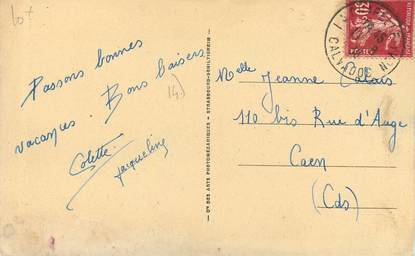 lot
Passons bonnes
vacances. Bons baisers
Colette
Jacqueline
14)
Cie DES ARTS PHOTOMÉCANIQUES - STRASBOURG-SCHILTIGHEIM
CALVADOS
POSTES
Melle Jeanne Calais
110 bis Rue d'Auge
Caen
(Cds)